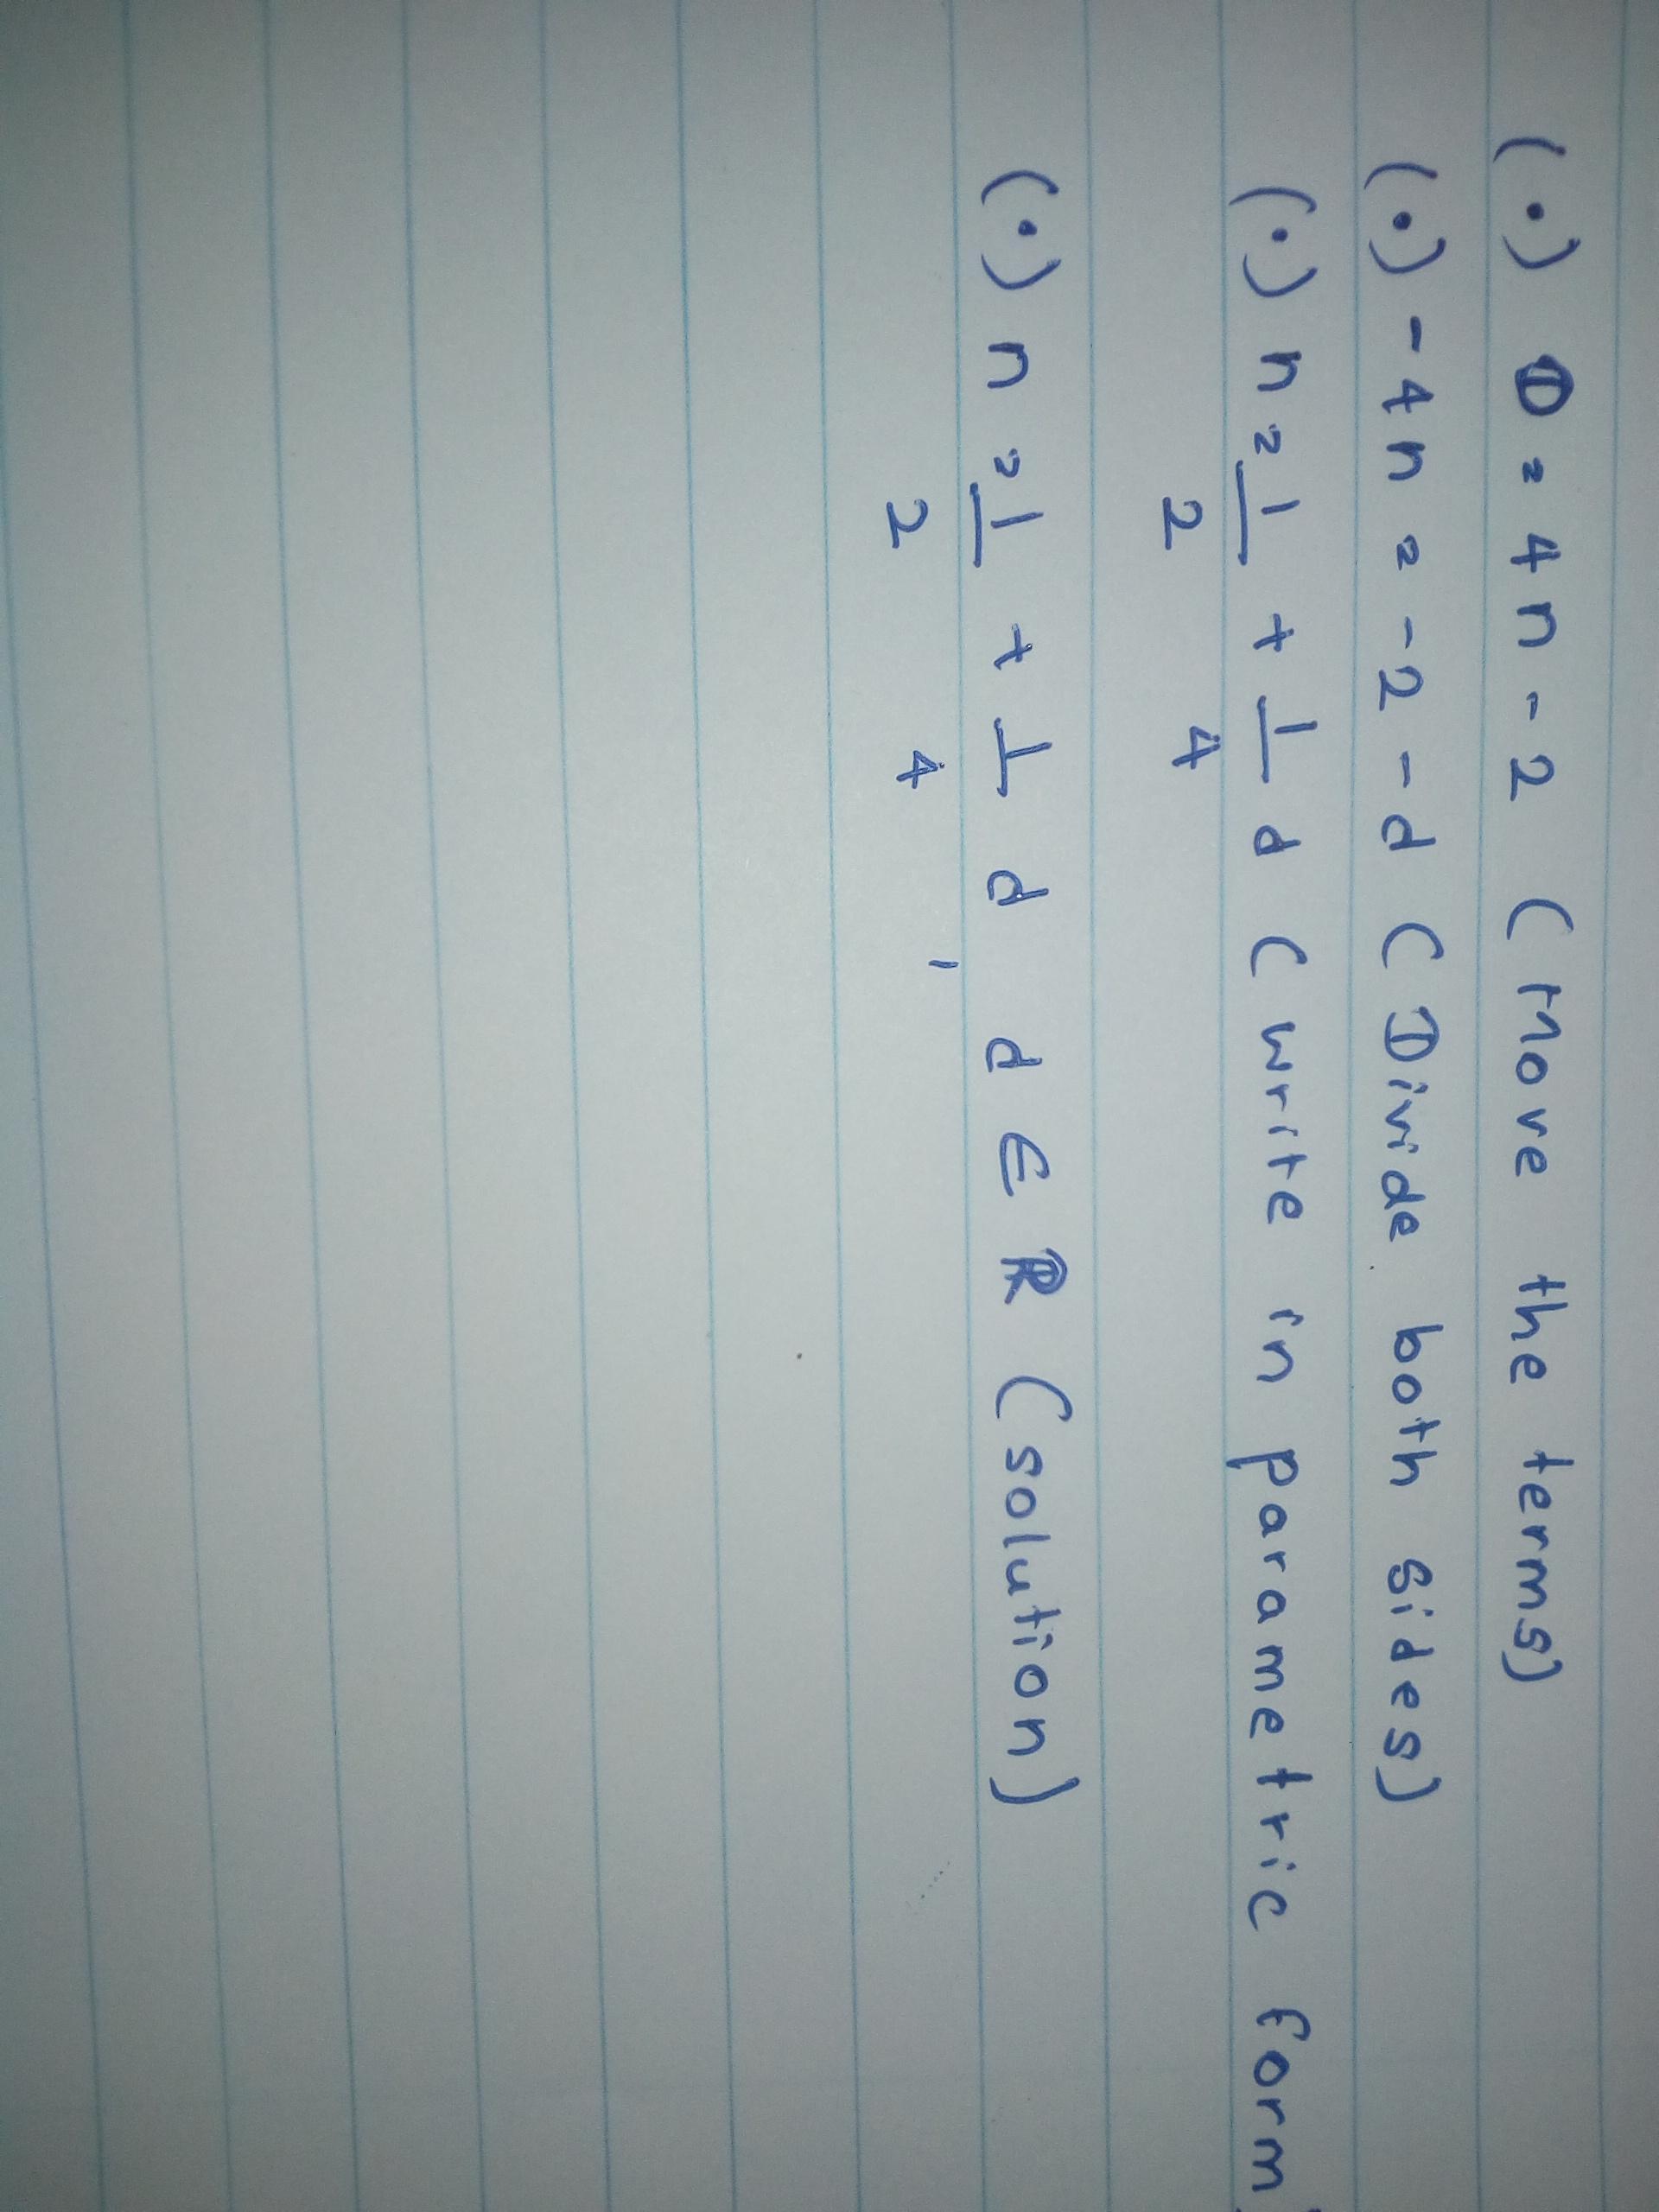 (•) D = 4n - 2 (Move the terms)
(•) - 4n = -2 - d (Divide both sides)
(•) n = 1/2 + 1/4 d (write in parametric form)
(•) n = 1/2 + 1/4 d , d ∈ ℝ (solution)